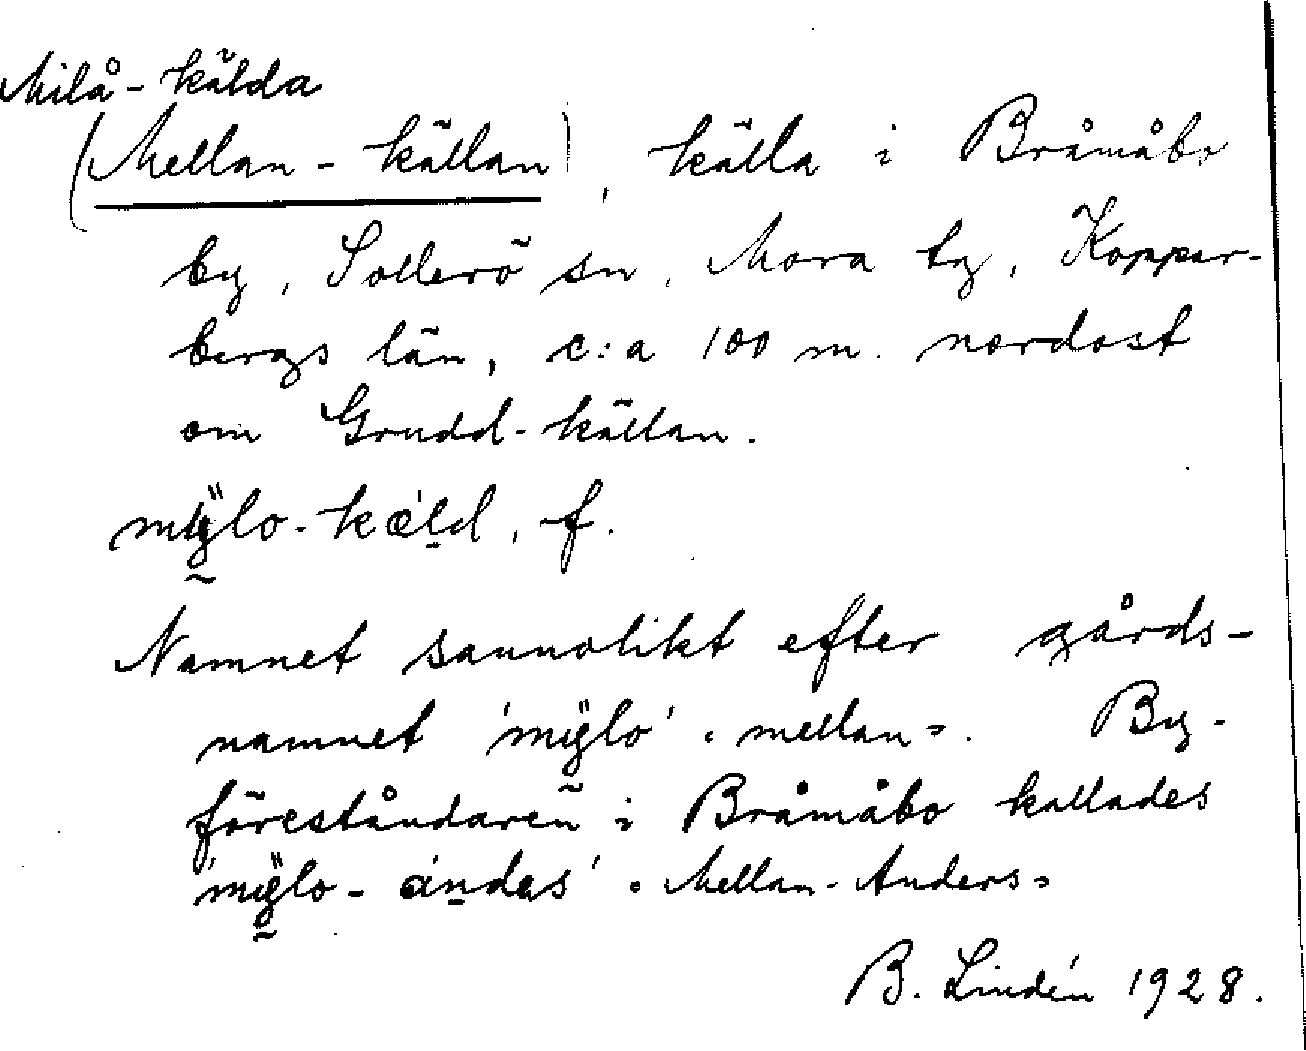 Milå-kälda
(Mellan-källan), källa i Bråmåbo
by, Sollerö sn, Mora tg, Koppar-
bergs län, c:a 100 m. nordost
om Grudd-källan.
mÿlo-kæld, f.
Namnet sannolikt efter gårds-
namnet 'mÿlo' "mellan". By-
föreståndaren i Bråmåbo kallades
'mÿlo-ándas' "Mellan-Anders"
B. Lindén 1928.